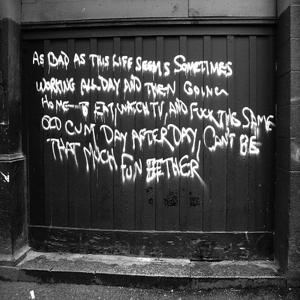 AS BAD AS THIS LIFE SEEMS SOMETIMES
WORKING ALL DAY AND THEN GOING
HOME - TO EAT, WATCH TV, AND FUCK THE SAME
OLD CUM DAY AFTER DAY, CAN'T BE
THAT MUCH FUN EETHER